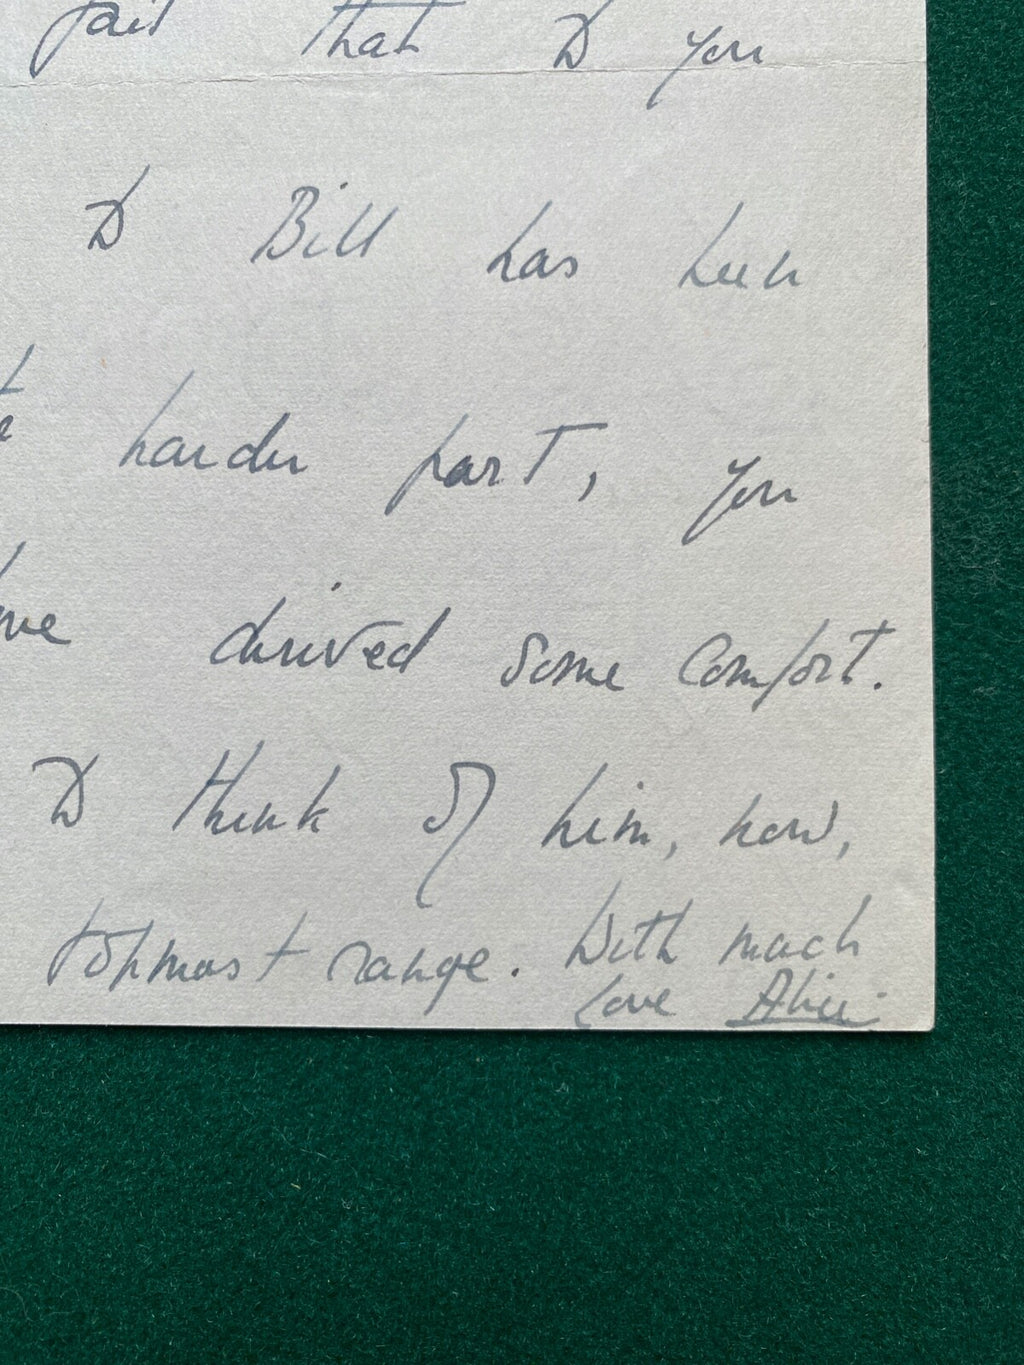 fail that to you
to Bill has been
harder part, you
derived some comfort.
to think of him, now,
topmost range. With much
love Alice.